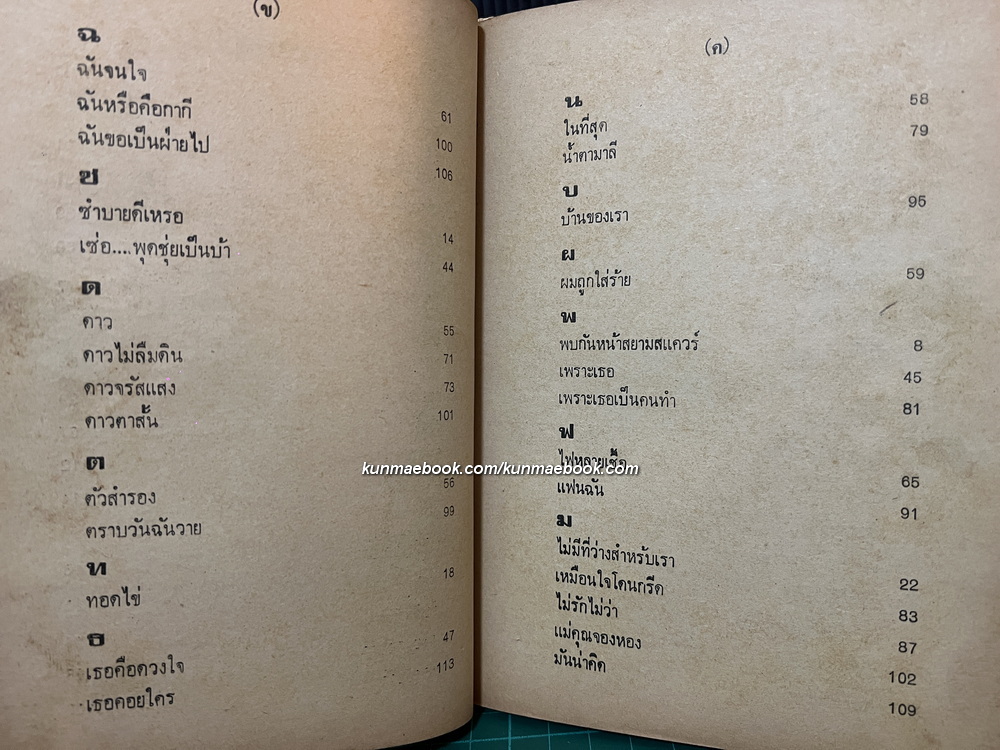 (ข)
ฉ
ฉันจนใจ 61
ฉันหรือคือกากี 100
ฉันขอเป็นฝ่ายไป 106
ซ
ซำบายดีเหรอ 14
เซ่อ....พุดซุ่ยเป็นบ้า 44
ด
ดาว 55
ดาวไม่ลืมดิน 71
ดาวจรัสแสง 73
ดาวตาสั้น 101
ต
ตัวสำรอง 56
ตราบวันฉันวาย 99
ท
ทอดไข่ 18
ธ
เธอคือดวงใจ 47
เธอคอยใคร 113
(ค)
น
ในที่สุด 58
น้ำตามาลี 79
บ
บ้านของเรา 95
ผ
ผมถูกใส่ร้าย 59
พ
พบกันหน้าสยามสแควร์ 8
เพราะเธอ 45
เพราะเธอเป็นคนทำ 81
ฟ
ไฟหลายเชื้อ 65
แฟนฉัน 91
ม
ไม่มีที่ว่างสำหรับเรา 22
เหมือนใจโดนกรีด 83
ไม่รักไม่ว่า 87
แม่คุณจองหอง 102
มันน่าคิด 109
kunmaebook.com/kunmaebook.com